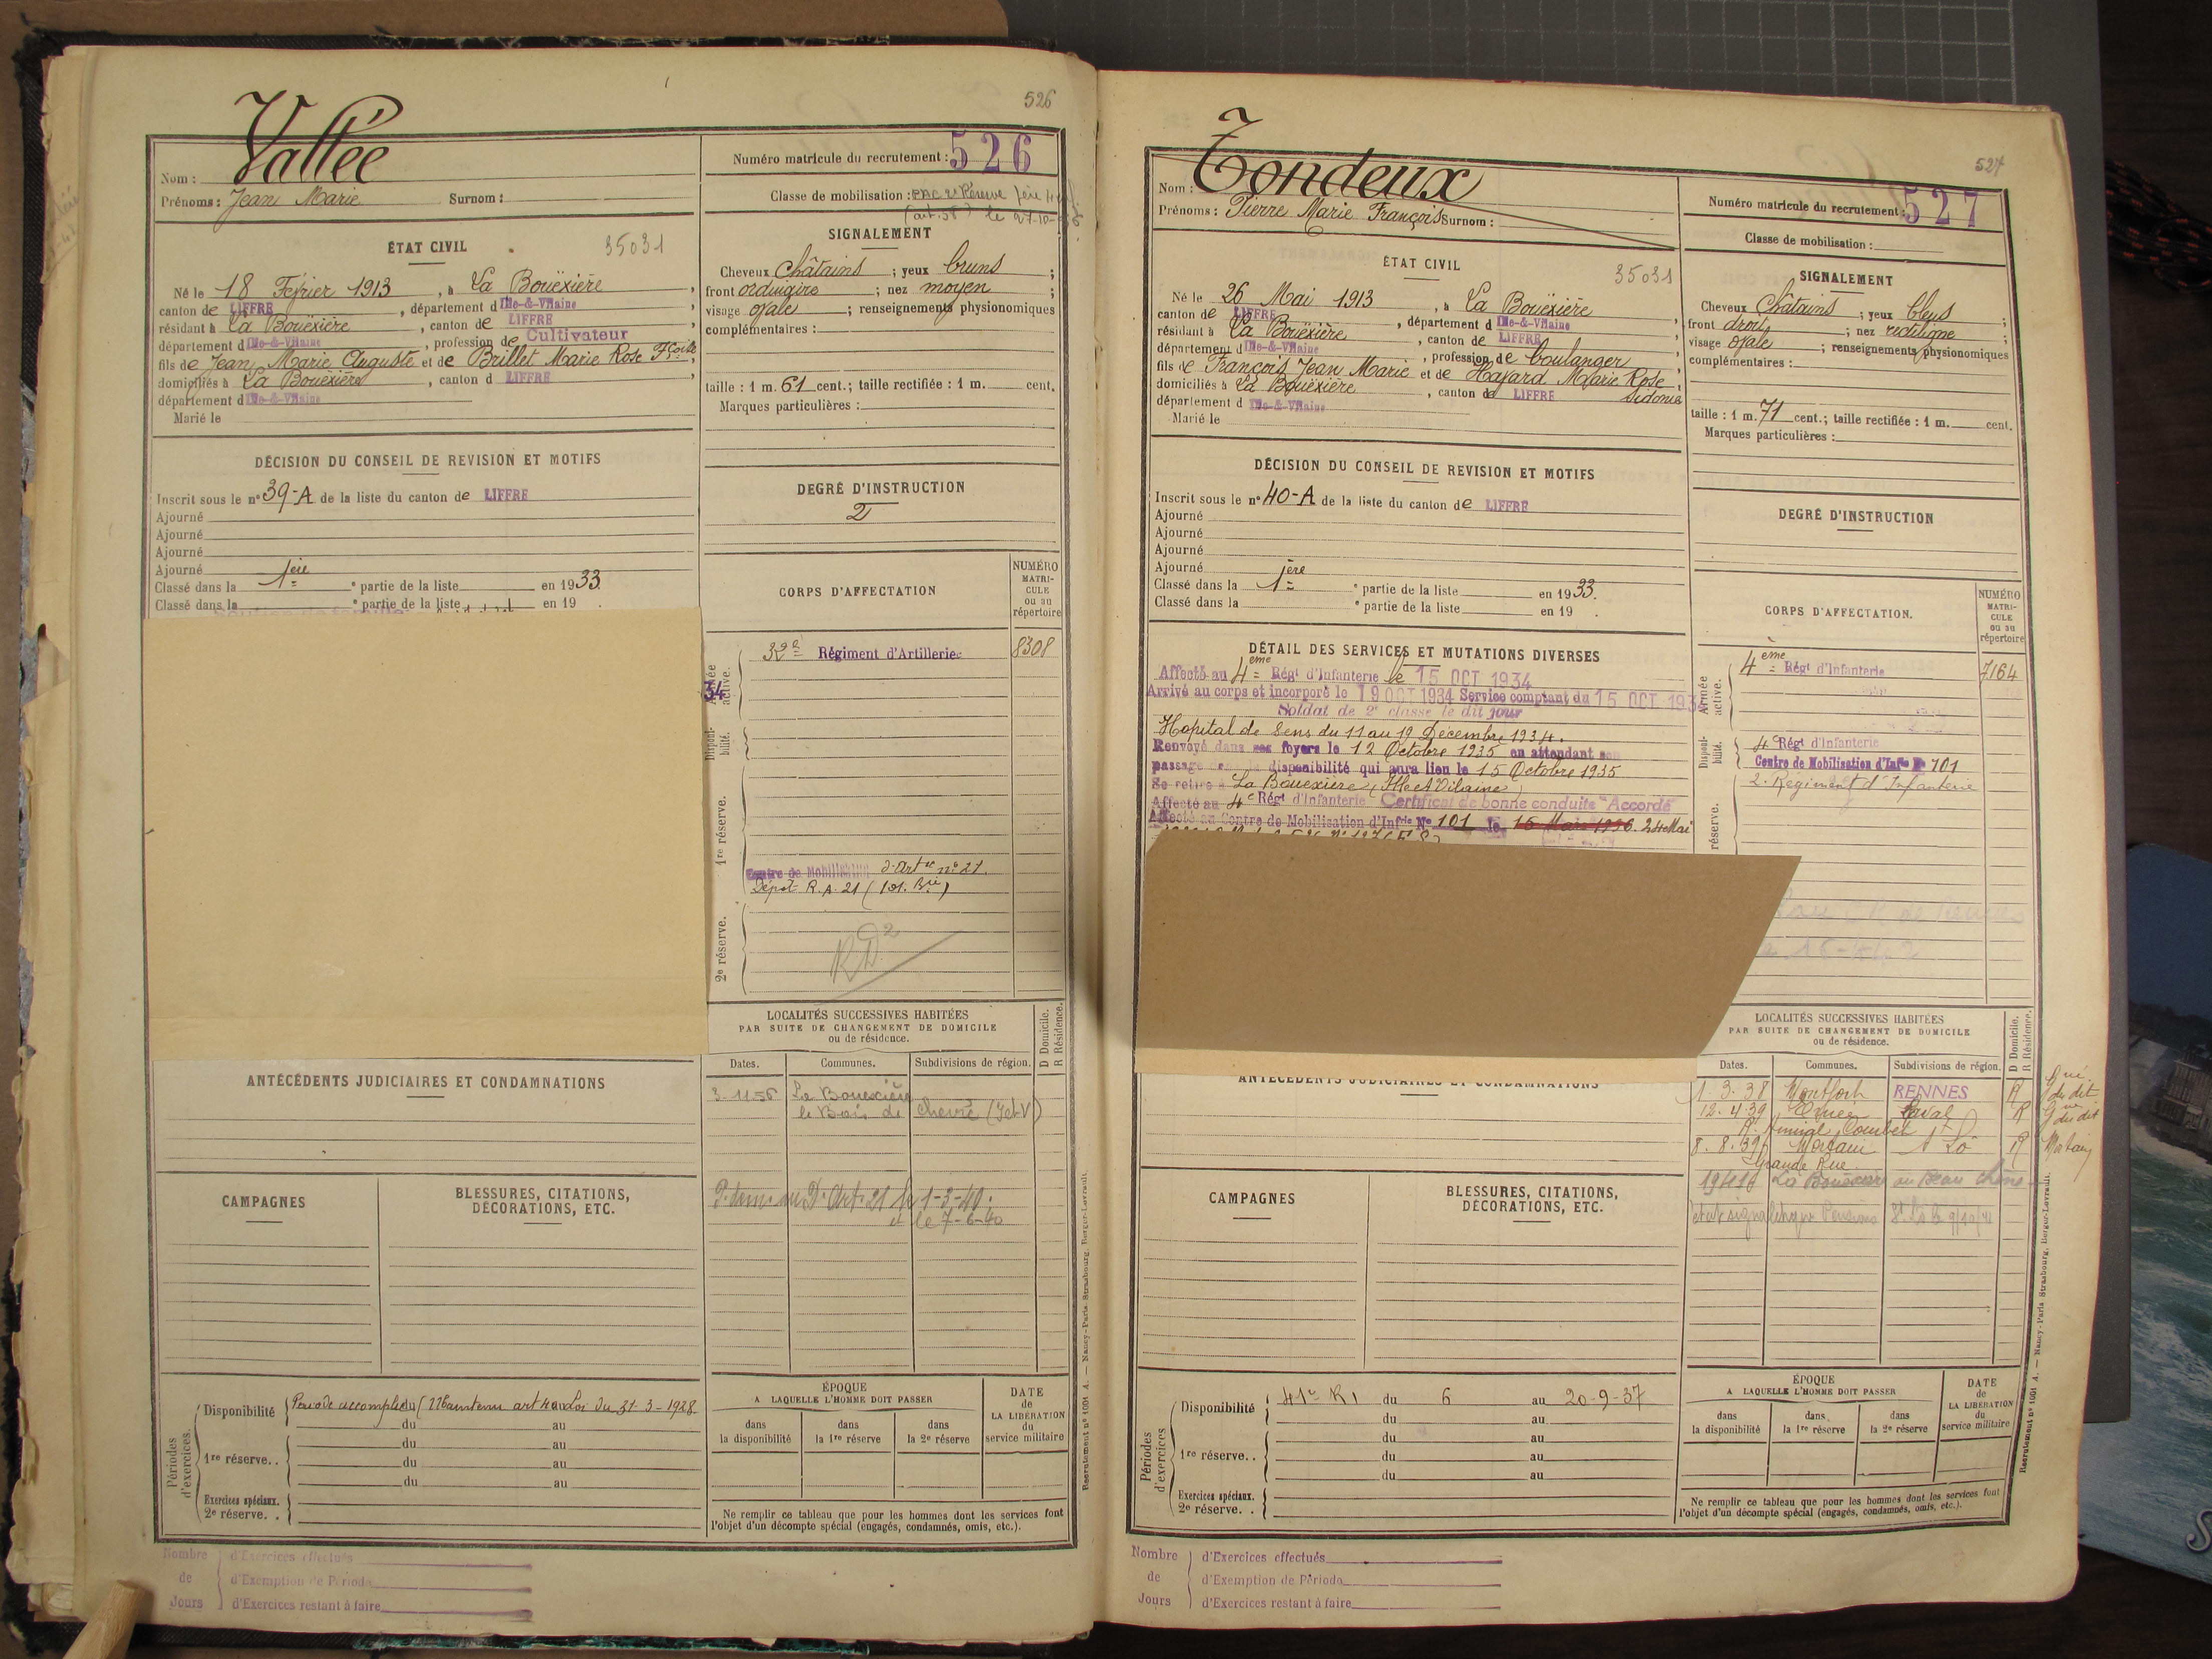 526
Vallée
Nom :
Prénoms : Jean Marie Surnom :
Numéro matricule du recrutement : 526
Classe de mobilisation :
ÉTAT CIVIL
35031
Né le 18 Février 1913, à La Bouëxière,
canton de LIFFRÉ, département d'Ille-&-Vilaine
résidant à La Bouëxière, canton de LIFFRÉ
département d'Ille-&-Vilaine, profession de Cultivateur
fils de Jean Marie Auguste et de Brillet Marie Rose
domiciliés à La Bouëxière, canton d LIFFRÉ
département d'Ille-&-Vilaine
Marié le
SIGNALEMENT
Cheveux Châtains ; yeux bruns ;
front ordinaire ; nez moyen ;
visage ovale ; renseignements physionomiques
complémentaires :
taille : 1 m. 61 cent.; taille rectifiée : 1 m. cent.
Marques particulières :
DÉCISION DU CONSEIL DE REVISION ET MOTIFS
Inscrit sous le n° 39-A de la liste du canton de LIFFRÉ
Ajourné
Ajourné
Ajourné
Ajourné
Classé dans la 1ère partie de la liste en 1933.
Classé dans la e partie de la liste en 19 .
DEGRÉ D'INSTRUCTION
2
CORPS D'AFFECTATION
NUMÉRO MATRICULE ou au répertoire
Armée active.
32e Régiment d'Artillerie 8308
34
Disponibilité.
1re réserve.
Centre de Mobilisation d'Artie n° 21.
Dépôt R.A. 21 (101. Bie)
2e réserve.
RD2
LOCALITÉS SUCCESSIVES HABITÉES
PAR SUITE DE CHANGEMENT DE DOMICILE
ou de résidence.
Dates. Communes. Subdivisions de région. D Domicile. R Résidence.
3-11-56 La Bouexière
le Bois de Chevré (I et V)
1-3-40.
le 7-6-40
ANTÉCÉDENTS JUDICIAIRES ET CONDAMNATIONS
CAMPAGNES
BLESSURES, CITATIONS,
DÉCORATIONS, ETC.
Périodes d'exercices.
Disponibilité Loi du 31-3-1928.
du au
1re réserve. . du au
du au
du au
Exercices spéciaux.
2e réserve. .
ÉPOQUE
A LAQUELLE L'HOMME DOIT PASSER
dans la disponibilité
dans la 1re réserve
dans la 2e réserve
DATE de LA LIBÉRATION du service militaire
Ne remplir ce tableau que pour les hommes dont les services font
l'objet d'un décompte spécial (engagés, condamnés, omis, etc.).
Recrutement n° 1001 A. — Nancy-Paris-Strasbourg, Berger-Levrault.
Nombre de Jours
d'Exercices effectués
d'Exemption de Période
d'Exercices restant à faire
527
Tondeux
Nom :
Prénoms : Pierre Marie François Surnom :
Numéro matricule du recrutement : 527
Classe de mobilisation :
ÉTAT CIVIL
35031
Né le 26 Mai 1913, à La Bouëxière,
canton de LIFFRÉ, département d'Ille-&-Vilaine
résidant à La Bouëxière, canton de LIFFRÉ
département d'Ille-&-Vilaine, profession de boulanger
fils de François Jean Marie et de Havard Marie Rose Sidonie
domiciliés à La Bouëxière, canton d LIFFRÉ
département d Ille-&-Vilaine
Marié le
SIGNALEMENT
Cheveux Châtains ; yeux bleus ;
front droit ; nez rectiligne ;
visage ovale ; renseignements physionomiques
complémentaires :
taille : 1 m. 71 cent.; taille rectifiée : 1 m. cent.
Marques particulières :
DÉCISION DU CONSEIL DE REVISION ET MOTIFS
Inscrit sous le n° 40-A de la liste du canton de LIFFRÉ
Ajourné
Ajourné
Ajourné
Ajourné
Classé dans la 1ère partie de la liste en 1933.
Classé dans la e partie de la liste en 19 .
DEGRÉ D'INSTRUCTION
DÉTAIL DES SERVICES ET MUTATIONS DIVERSES
Affecté au 4ème Régt d'Infanterie le 15 OCT 1934
Arrivé au corps et incorporé le 19 OCT 1934 Service comptant du 15 OCT 1934
Soldat de 2e classe le dit jour
Hopital de Sens du 11 au 19 Décembre 1934.
Renvoyé dans ses foyers le 12 Octobre 1935 en attendant son
passage dans la disponibilité qui aura lieu le 15 Octobre 1935
Se retire à La Bouexière (Ille et Vilaine)
Affecté au 4e Régt d'Infanterie Certificat de bonne conduite "Accordé"
Affecté au Centre de Mobilisation d'Infie N° 101 le 15 Mars 1936. 24 Mai
CORPS D'AFFECTATION.
NUMÉRO MATRICULE ou au répertoire
Armée active.
4ème Régt d'Infanterie 7164
Disponibilité.
4e Régt d'Infanterie
Centre de Mobilisation d'Infie N° 101
2. Régiment d'Infanterie
réserve.
LOCALITÉS SUCCESSIVES HABITÉES
PAR SUITE DE CHANGEMENT DE DOMICILE
ou de résidence.
Dates. Communes. Subdivisions de région. D Domicile. R Résidence.
1. 3. 38 Montfort RENNES R
12. 4. 39 Laval R
8. 8. 39 Mortain St Lô R Mortain
Grande Rue
La Bouexière au Beau Chêne
ANTÉCÉDENTS JUDICIAIRES ET CONDAMNATIONS
CAMPAGNES
BLESSURES, CITATIONS,
DÉCORATIONS, ETC.
Périodes d'exercices
Disponibilité 41e RI du 6 au 20-9-37
du au
1re réserve. . du au
du au
du au
Exercices spéciaux.
2e réserve. .
ÉPOQUE
A LAQUELLE L'HOMME DOIT PASSER
dans la disponibilité
dans la 1re réserve
dans la 2e réserve
DATE de LA LIBÉRATION du service militaire
Ne remplir ce tableau que pour les hommes dont les services font
l'objet d'un décompte spécial (engagés, condamnés, omis, etc.).
Recrutement n° 1001 A. — Nancy-Paris-Strasbourg, Berger-Levrault.
Nombre de Jours
d'Exercices effectués
d'Exemption de Période
d'Exercices restant à faire